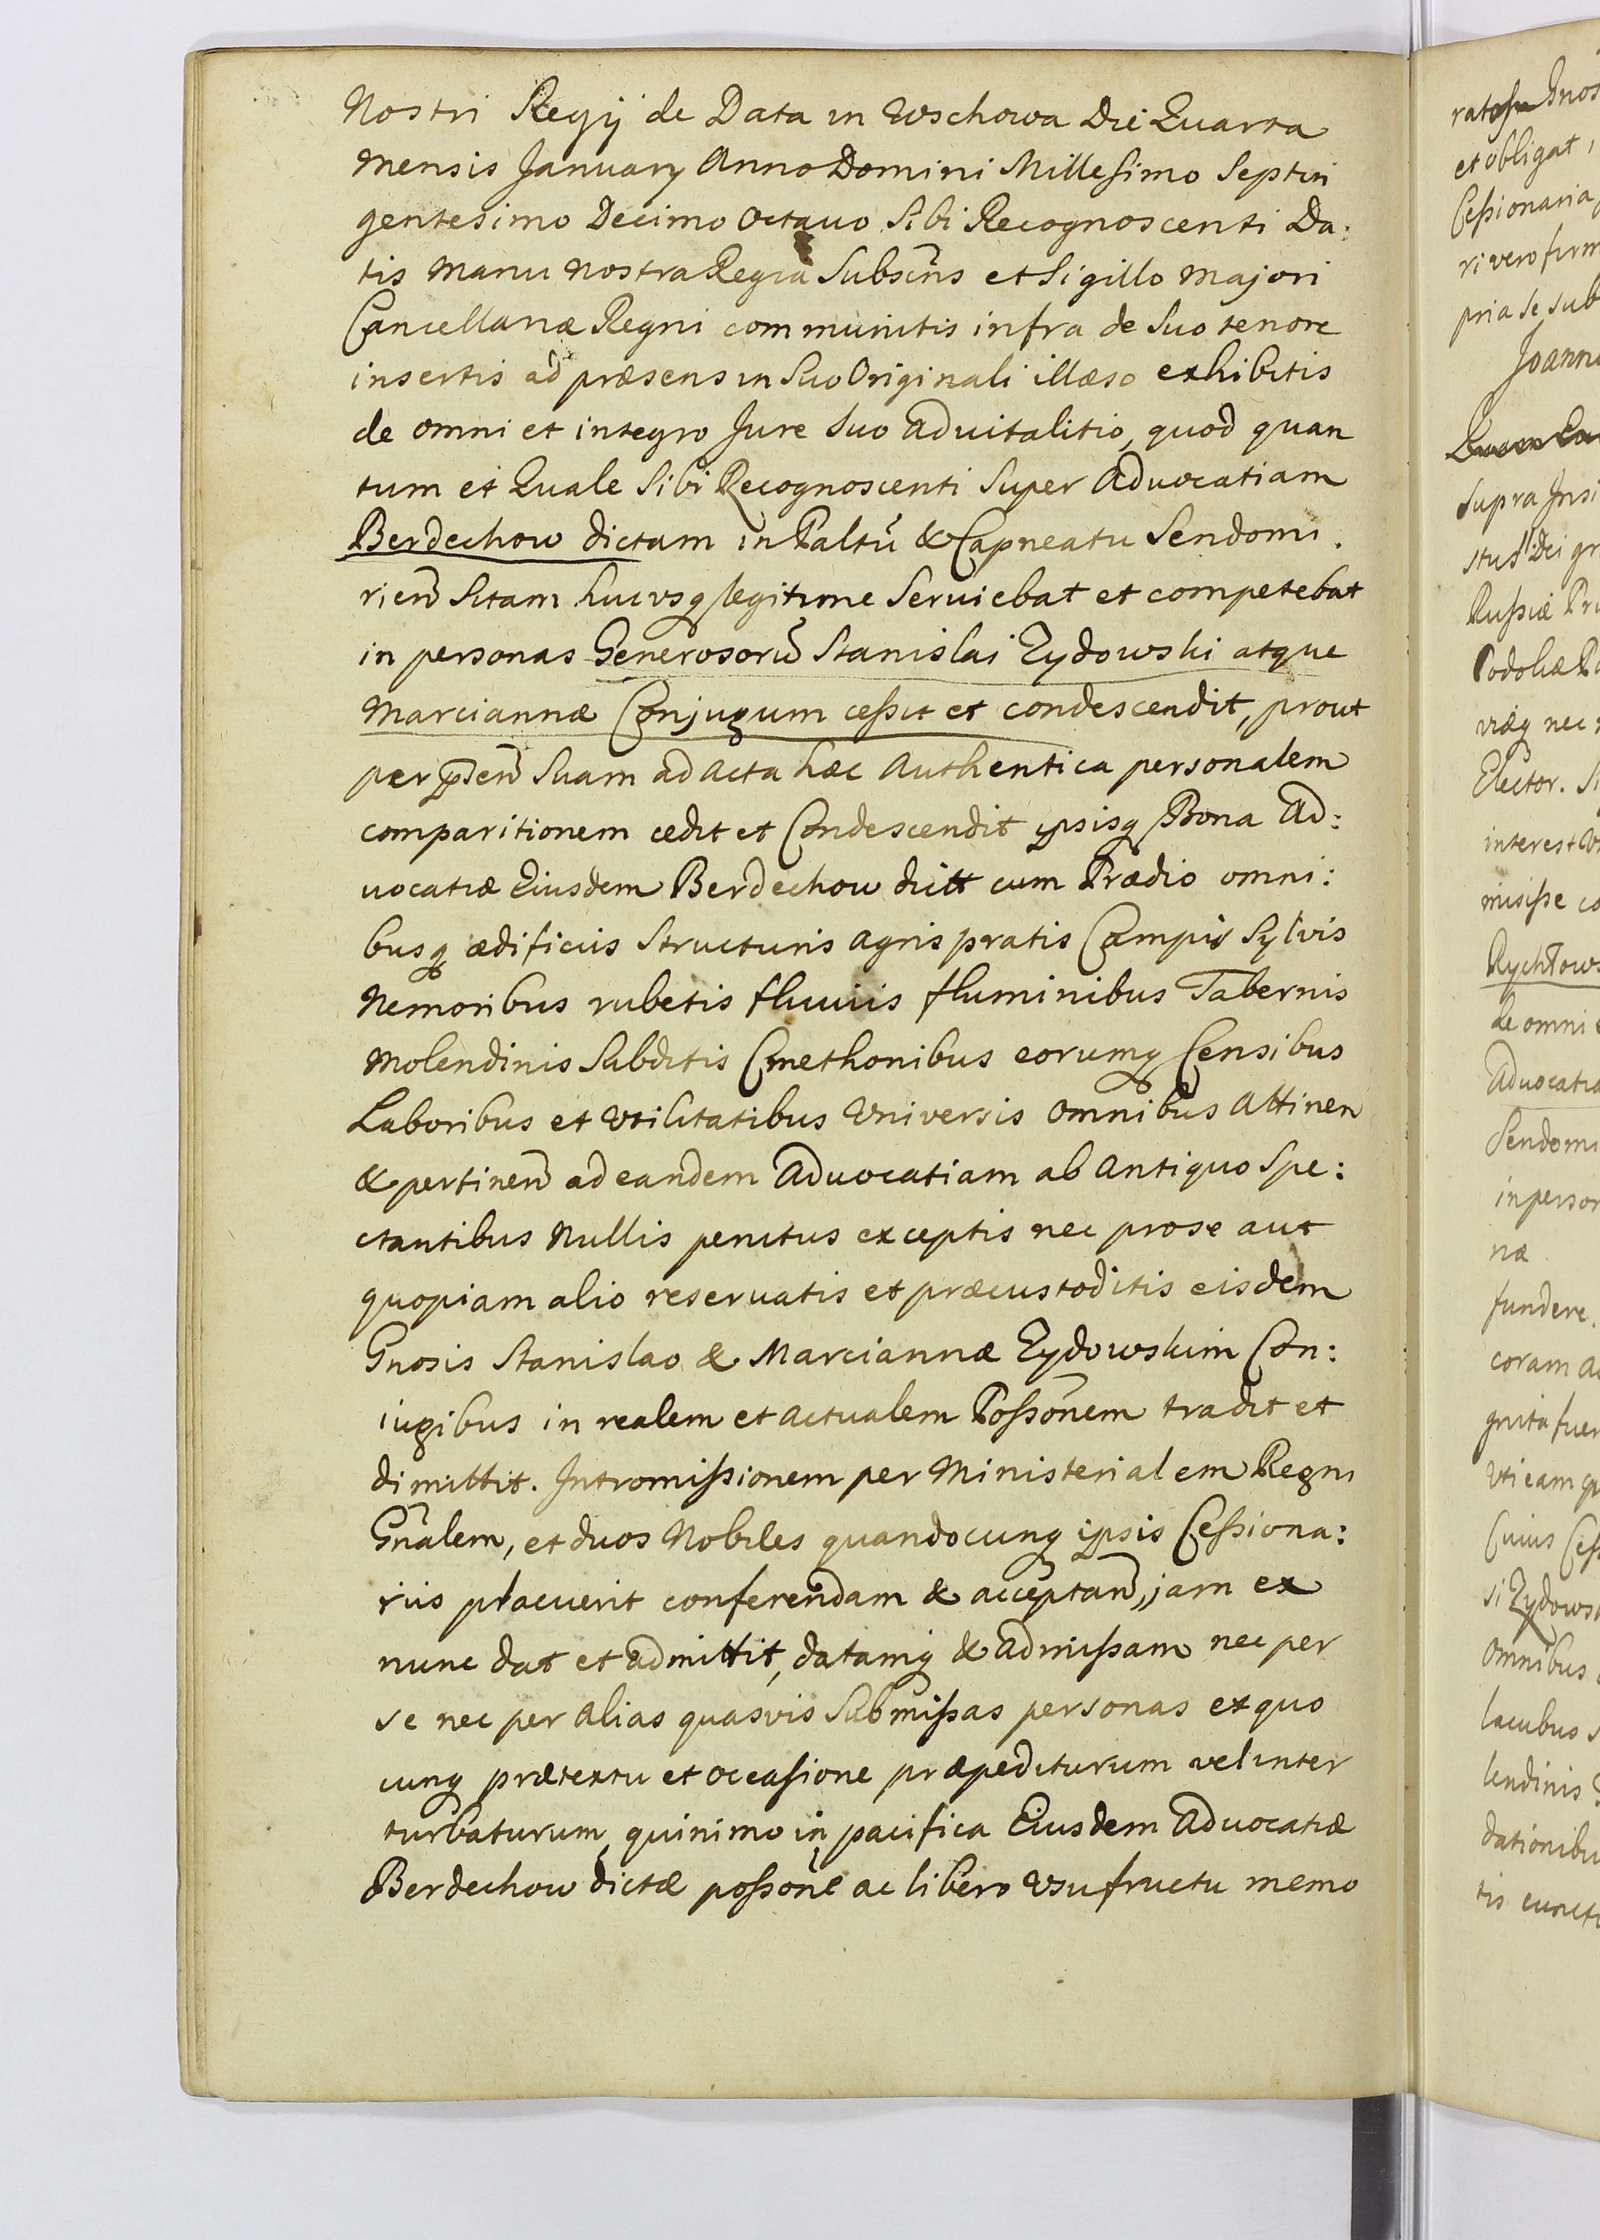 Nostri Regÿ de Data in Wschowa Die Quarta
Mensis January Anno Domini Millesimo Septin
gentesimo Decimo octauo Sibi Recognoscenti Da:
tis Manu nostra Regia Subscris et Sigillo Majori
Cancellariæ Regni communitis infra de Suo tenore
insertis ad præsens in Suo Originali illæso exhibitis
de omni et integro Jure Suo aduitalitio, quod quan
tum et Quale Sibi Recognoscenti Super Aduocatiam
Berdechow dictam in Paltu & Capneatu Sendomi.
rien Sitam hucusq legitime Seruiebat et competebat
in personas Generosorū Stanislai Zydowski atque
Marciannæ Conjugum cessit et condescendit, prout
per psen Suam ad acta hæc Authentica personalem
comparitionem cedit et Condescendit ipsisq Bona Ad:
uocatiæ Eiusdem Berdechow dictt cum Prædio omni:
busq ædificiis Structuris agris pratis Campis Sylvis
Nemoribus rubetis fluuiis fluminibus Tabernis
Molendinis Subditis Cmethonibus eorumq Censibus
Laboribus et Vtilitatibus Vniversis omnibus Attinen
& pertinen ad eandem Aduocatiam ab antiquo Spe:
ctantibus Nullis penitus exceptis nec pro se aut
quopiam alio reseruatis et præcustoditis eisdem
Gnosis Stanislao & Marciannæ Zydowskim Con:
iugibus in realem et actualem Possonem tradit et
dimittit. Intromissionem per Ministerialem Regni
Gnalem, et duos Nobiles quandocunq ipsis Cessiona:
riis placuerit conferendam & acceptan, jam ex
nunc dat et admittit, datamq & admissam nec per
se nec per alias quasvis Submissas personas ex quo
cunq prætextu et occasione præpediturum vel inter
turbaturum quinimo in pacifica Eiusdem Aduocatiæ
Berdechow dictæ possone ac libero Vsufructu memo
et obligat,
Cessionaria
ri vero firm
pria se sub
Joann
Supra Insi
stus II Dei gr
Russiæ Pru
Podoliæ
viæq nec
Elector.
interest
misisse co
Rychłows
de omni
Aduocatia
Sendomi
in person
næ
fundere.
coram a
gnita fuer
Vti eam
Cuius Cess
si Zydows
omnibus
lacubus s
lendinis
dationibu
tis cunct